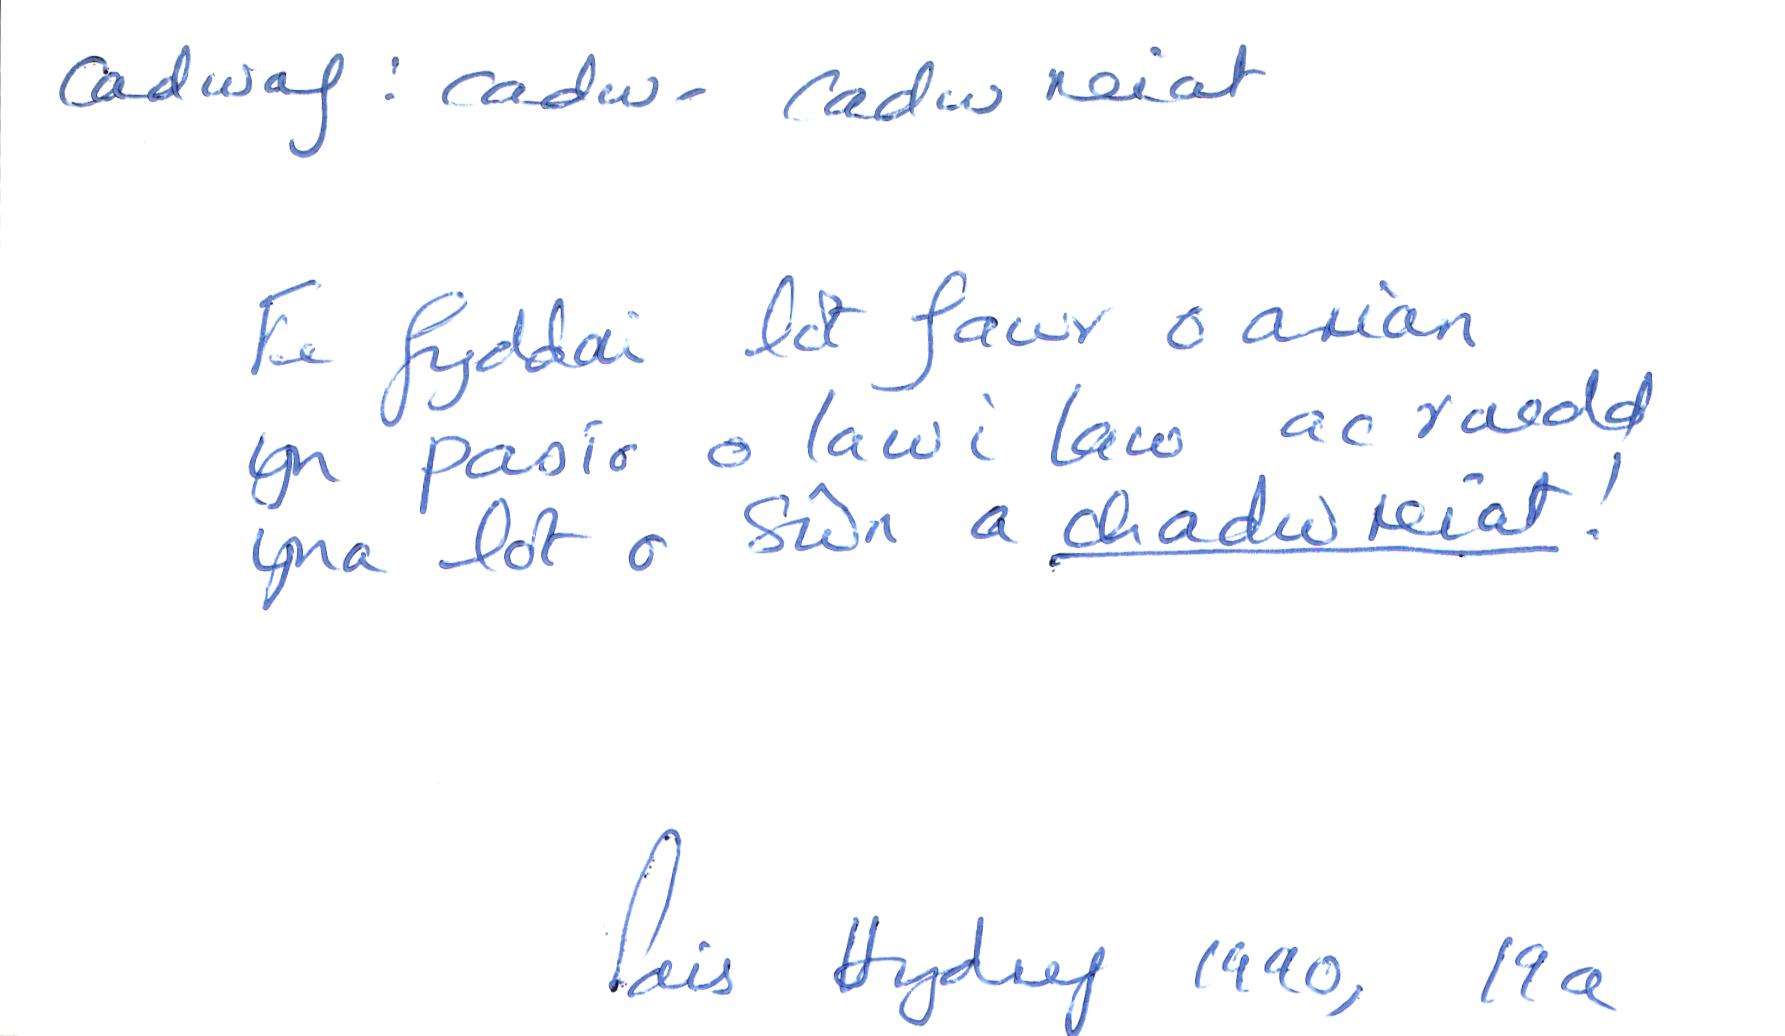 cadwaf: cadw- cadw reiat
Fe fyddai lot fawr o arian
yn pasio o law i law ac roedd
yna lot o sŵn a chadw reiat!
Pais Hydref 1990, 19a